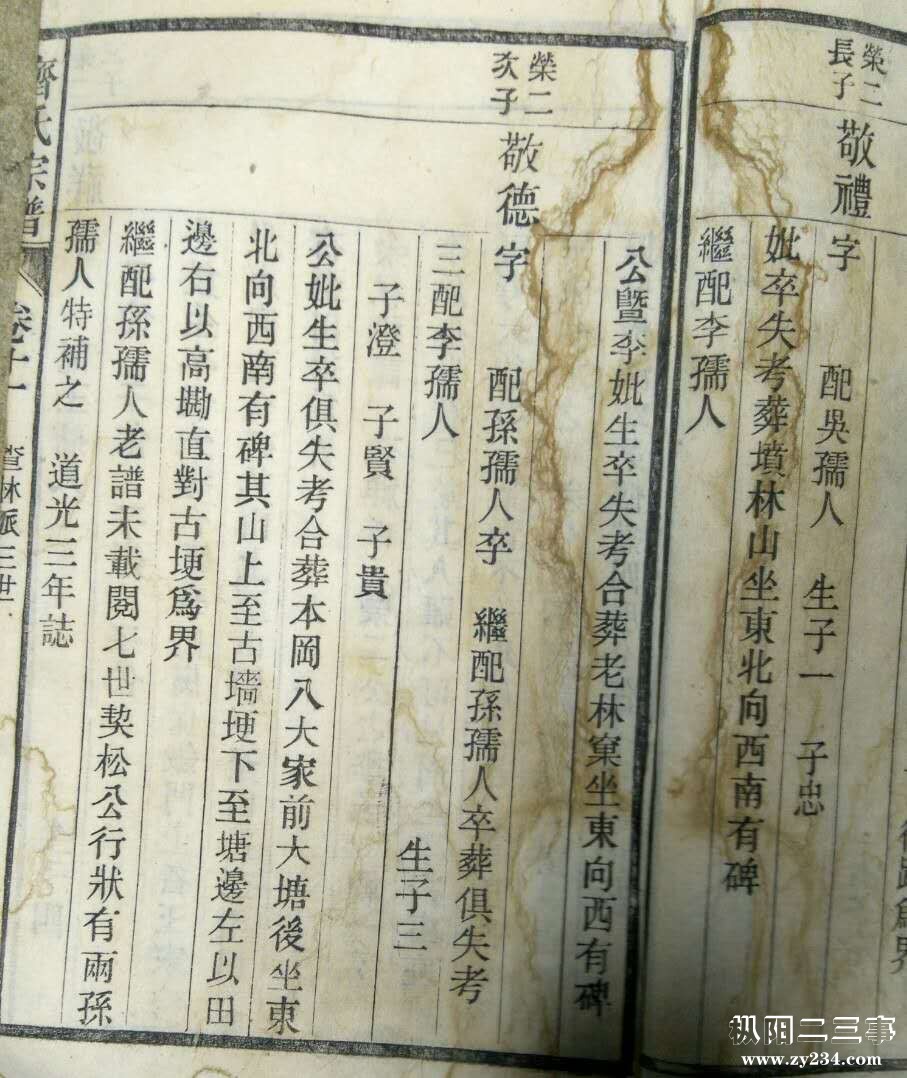 榮二
長子
敬禮
字 配吳孺人 生子一 子忠
妣卒失考葬墳林山坐東北向西南有碑
繼配李孺人
公暨李妣生卒失考合葬老林窠坐東向西有碑
榮二
次子
敬德
字 配孫孺人卒 繼配孫孺人卒葬俱失考
三配李孺人 生子三
子澄 子賢 子貴
公妣生卒俱失考合葬本岡入大冢前大塘後坐東
北向西南有碑其山上至古墻埂下至塘邊左以田
邊右以高壪直對古埂爲界
繼配孫孺人老譜未載閱七世契松公行狀有兩孫
孺人特補之 道光三年誌
齊氏宗譜 卷十一 查林派三世
枞阳二三事
www.zy234.com